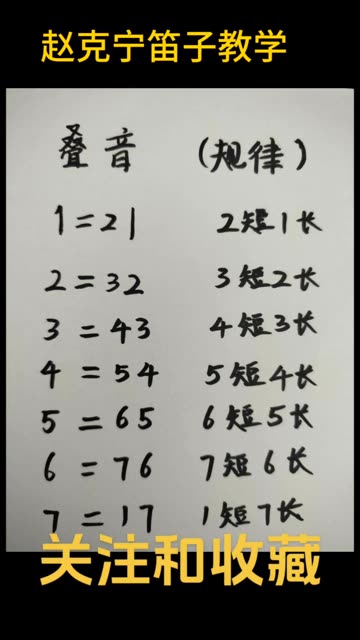 赵克宁笛子教学
叠音 (规律)
1=21 2短1长
2=32 3短2长
3=43 4短3长
4=54 5短4长
5=65 6短5长
6=76 7短6长
7=17 1短7长
关注和收藏